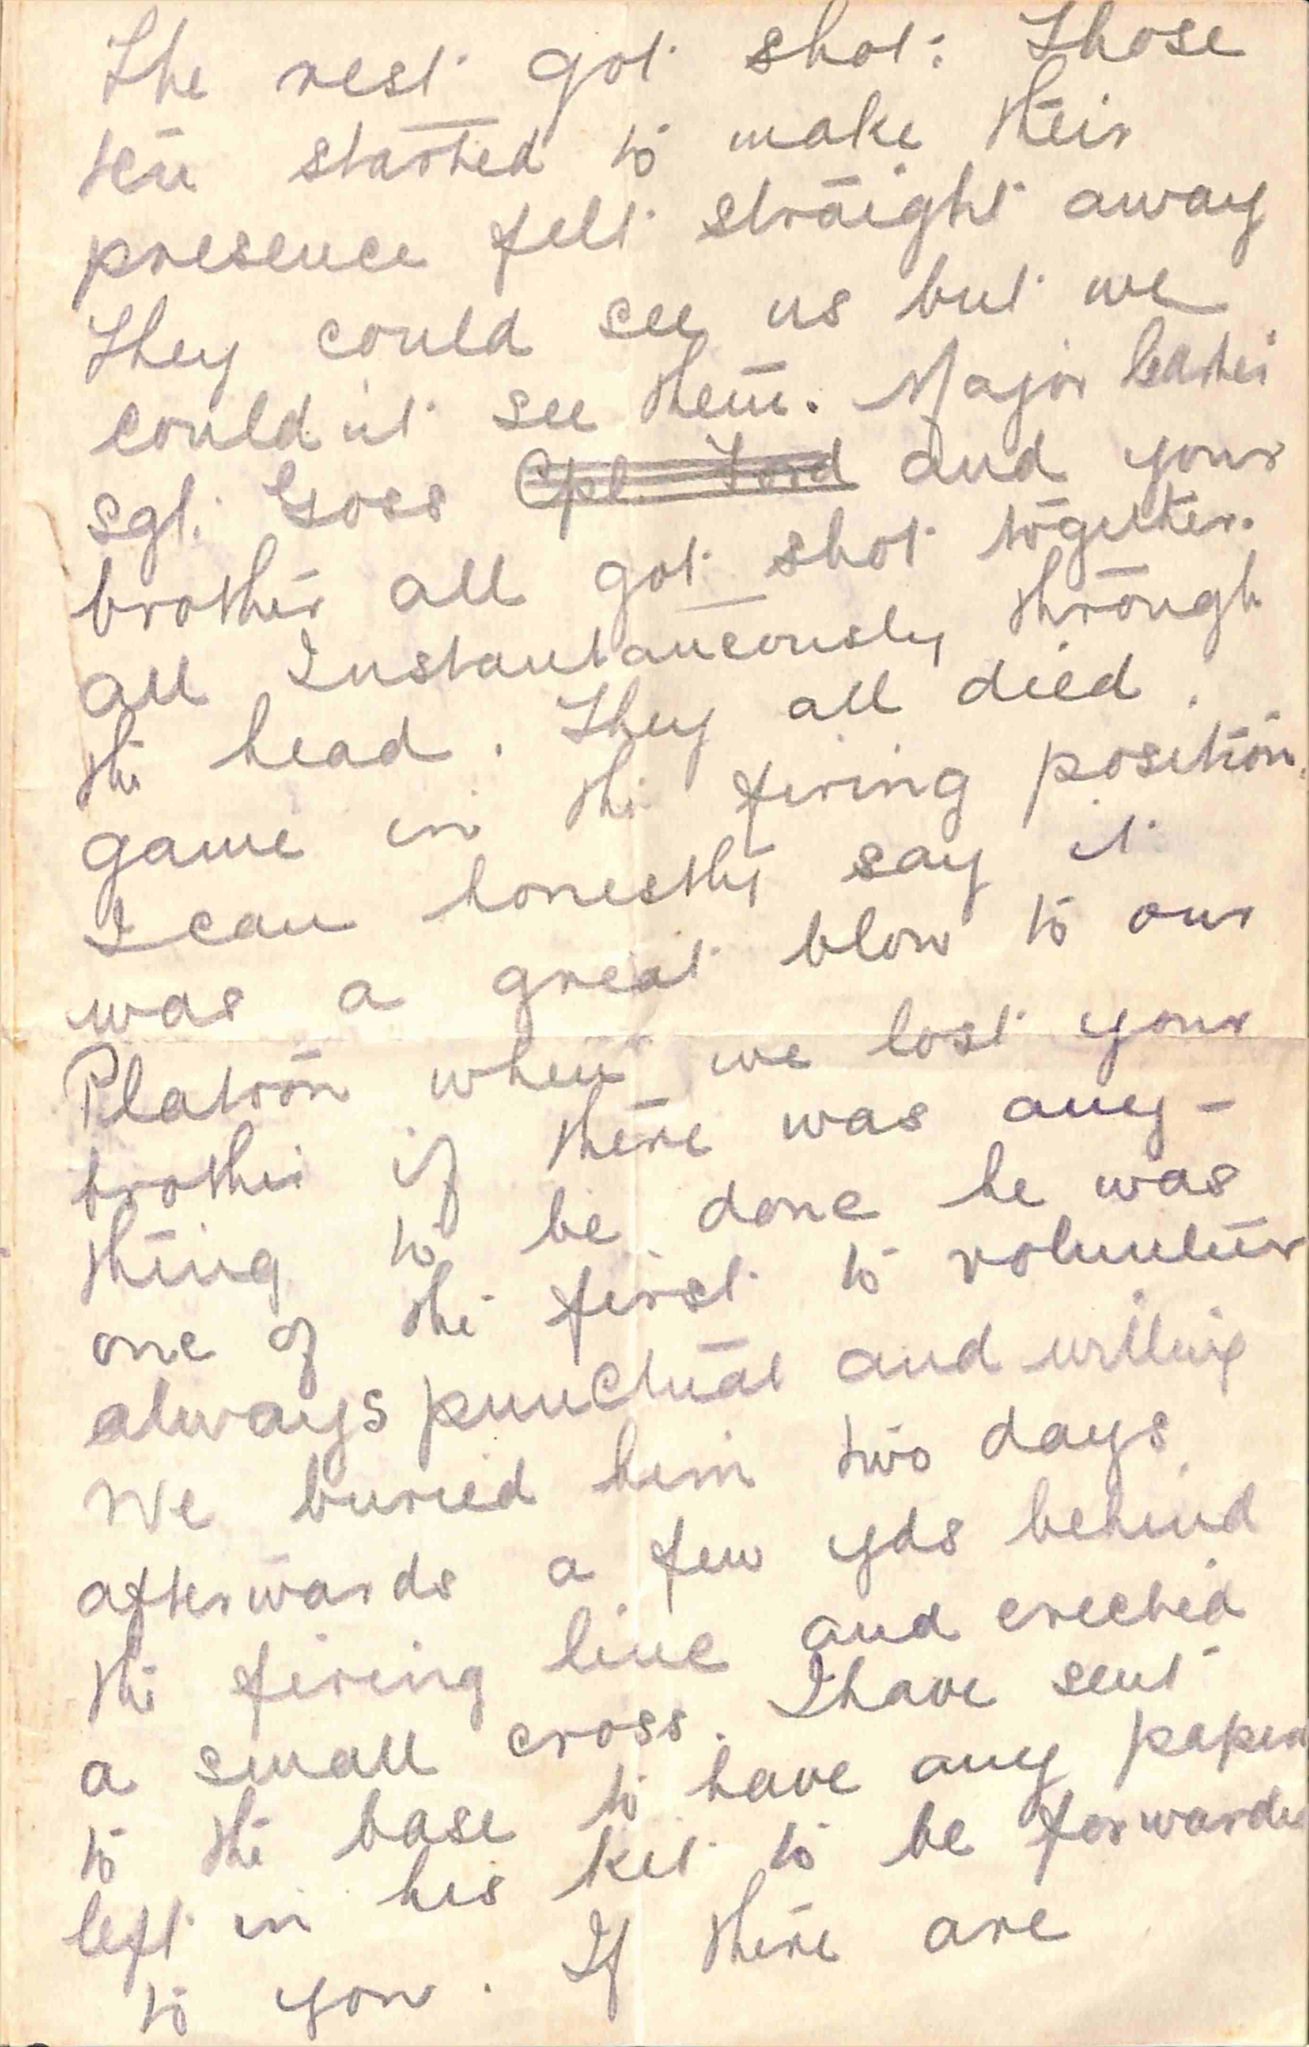 The rest got shot: Those
ten started to make their
presence felt straight away
They could see us but we
could'nt see them. Major
Sgt. Goes Cpl. Ford and your
brother all got shot together.
all Instantaneously through
the head. They all died
game in the firing position.
I can honestly say it
was a great blow to our
Platoon when we lost your
brother if there was any-
thing to be done he was
one of the first to volunteer
always punctual and willing
We buried him two days
afterwards a few yds behind
the firing line and erected
a small cross. I have sent
to the base to have any papers
left in his kit to be forwarded
to you. If there are